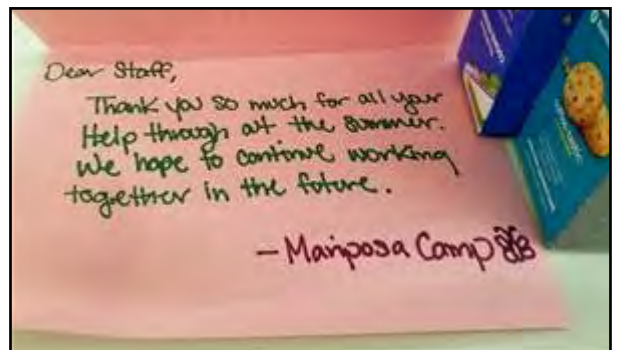 Dear Staff,
Thank you so much for all your
Help through out the summer.
We hope to continue working
together in the future.
- Mariposa Camp